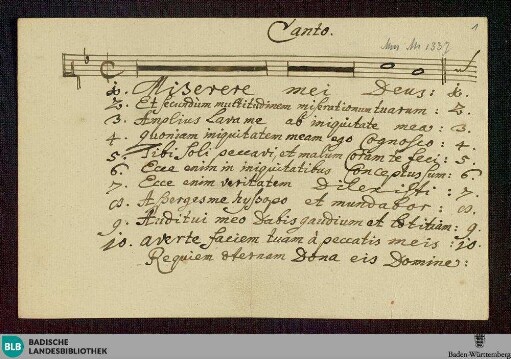 Canto.
Mus. Hs. 1337
1
1. Miserere mei Deus: 1.
2. Et secundum multitudinem miserationum tuarum: 2.
3. Amplius Lava me ab iniquitate mea: 3.
4. quoniam iniquitatem meam ego Cognosco: 4.
5. Tibi Soli peccavi, et malum Coram te feci: 5.
6. Ecce enim in iniquitatibus Conceptus sum: 6.
7. Ecce enim veritatem Dilexisti: 7.
8. Asperges me hysopo et mundabor: 8.
9. Auditui meo Dabis gaudium et lætitiam: 9.
10. averte faciem tuam à peccatis meis: 10.
Requiem æternam Dona eis Domine:
BLB BADISCHE
LANDESBIBLIOTHEK
Baden-Württemberg